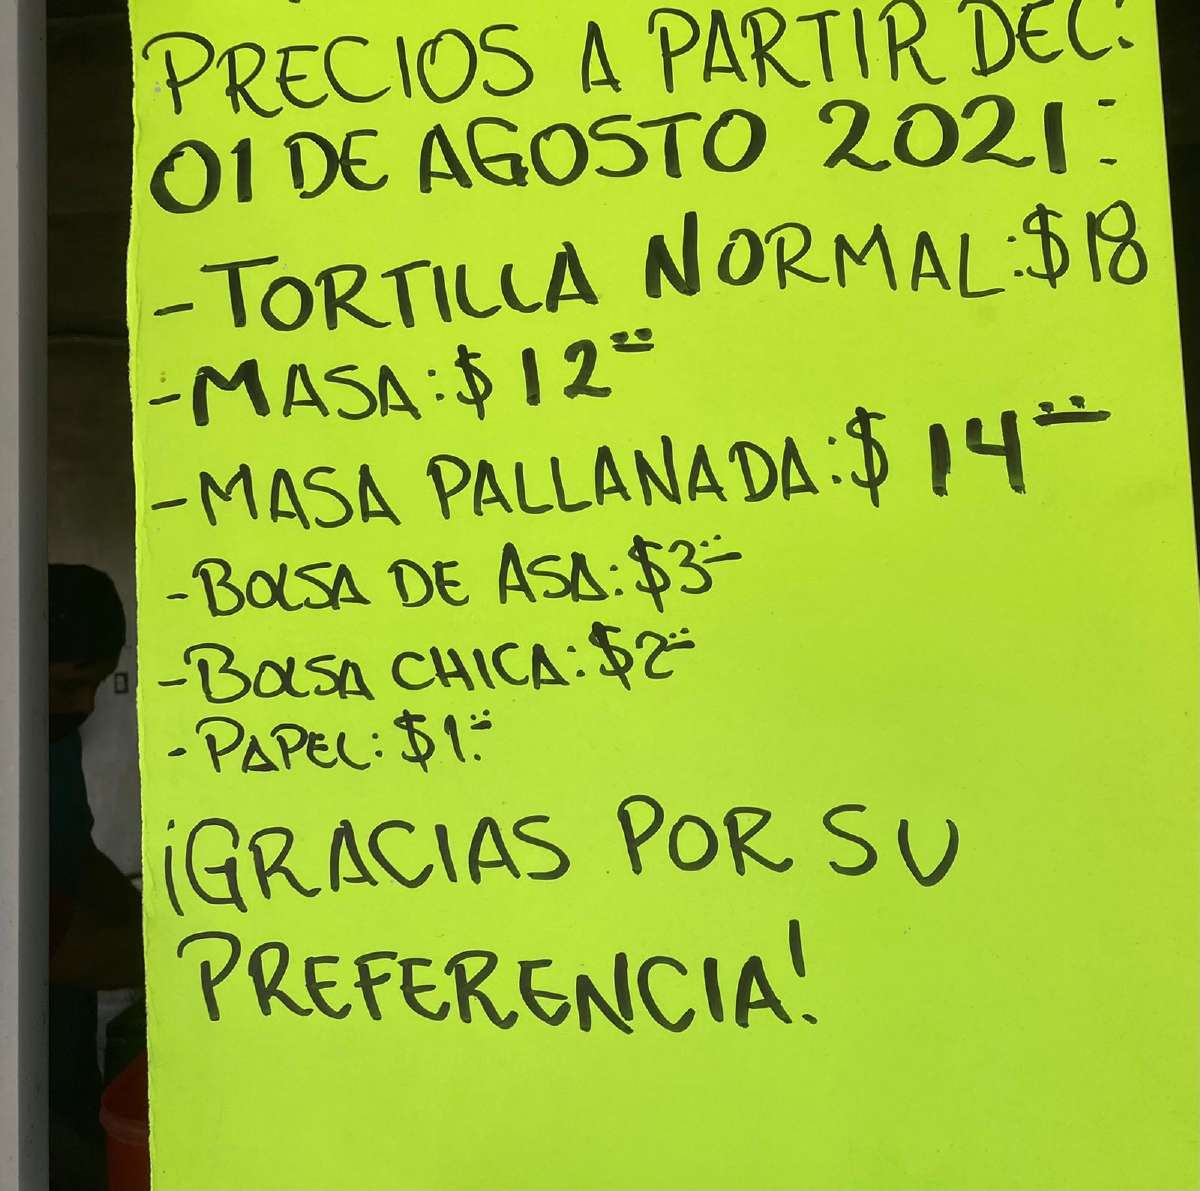 PRECIOS A PARTIR DEL:
01 DE AGOSTO 2021:
-TORTILLA NORMAL:$18
-MASA:$12
-MASA PALLANADA:$14
-BOLSA DE ASA:$3
-BOLSA CHICA:$2
-PAPEL:$1
¡GRACIAS POR SU
PREFERENCIA!